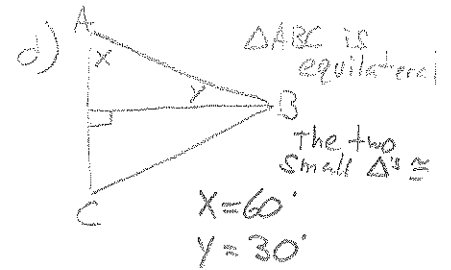 d)
A
X
Y
B
C
△ABC is
equilateral
The two
small △'s ≅
X=60°
Y=30°